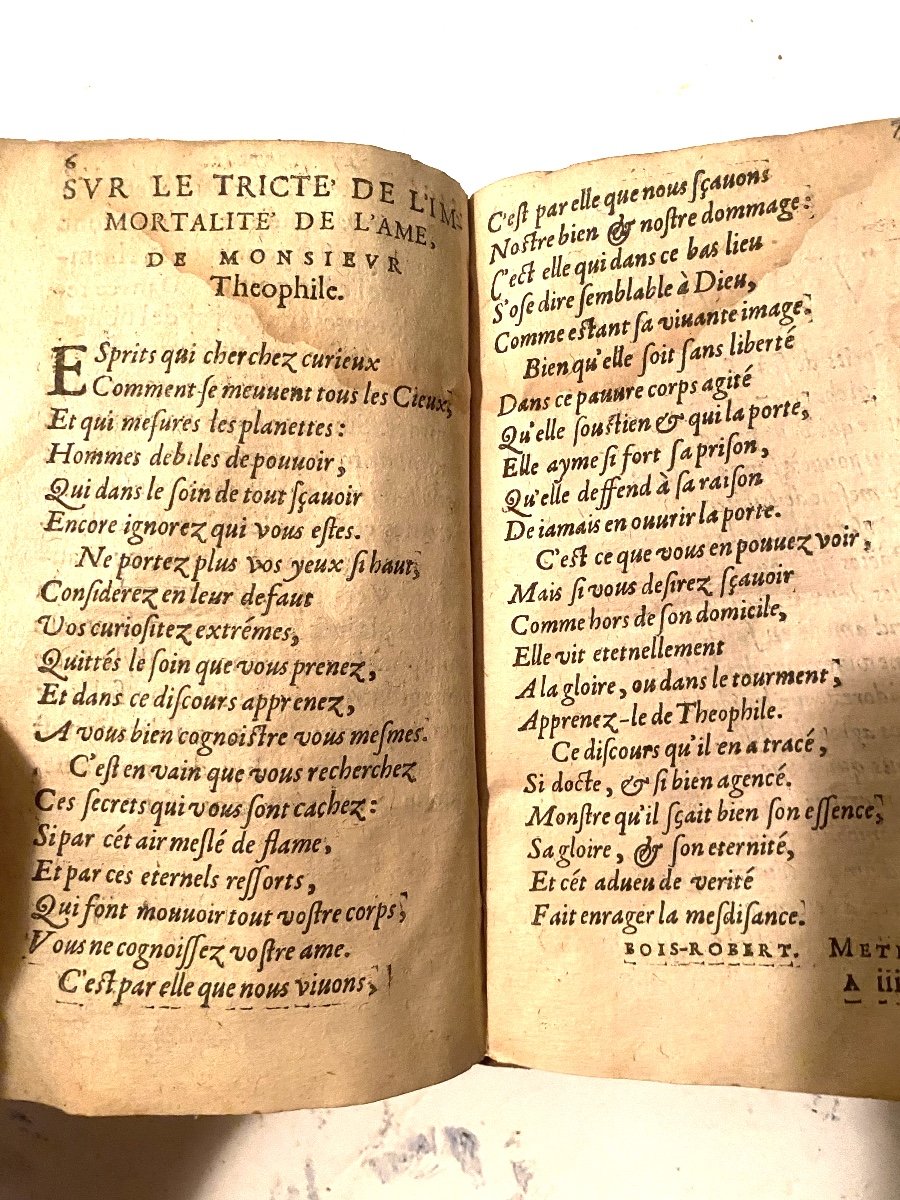 6
SVR LE TRICTE' DE L'IM-
MORTALITE' DE L'AME,
DE MONSIEVR
Theophile.
ESprits qui cherchez curieux
Comment se meuuent tous les Cieux,
Et qui mesures les planettes:
Hommes debiles de pouuoir,
Qui dans le soin de tout sçauoir
Encore ignorez qui vous estes.
Ne portez plus vos yeux si haut,
Considerez en leur defaut
Vos curiositez extrémes,
Quittés le soin que vous prenez,
Et dans ce discours apprenez,
A vous bien cognoistre vous mesmes.
C'est en vain que vous recherchez
Ces secrets qui vous sont cachez:
Si par cét air meslé de flame,
Et par ces eternels ressorts,
Qui font mouuoir tout vostre corps,
Vous ne cognoissez vostre ame.
C'est par elle que nous viuons,
7
C'est par elle que nous sçauons
Nostre bien & nostre dommage:
C'ect elle qui dans ce bas lieu
S'ose dire semblable à Dieu,
Comme estant sa viuante image.
Bien qu'elle soit sans liberté
Dans ce pauure corps agité
Qu'elle soustien & qui la porte,
Elle ayme si fort sa prison,
Qu'elle deffend à sa raison
De iamais en ouurir la porte.
C'est ce que vous en pouuez voir,
Mais si vous desirez sçauoir
Comme hors de son domicile,
Elle vit etetnellement
A la gloire, ou dans le tourment,
Apprenez-le de Theophile.
Ce discours qu'il en a tracé,
Si docte, & si bien agencé.
Monstre qu'il sçait bien son essence,
Sa gloire, & son eternité,
Et cét adueu de verité
Fait enrager la mesdisance.
BOIS-ROBERT. MET
A iii